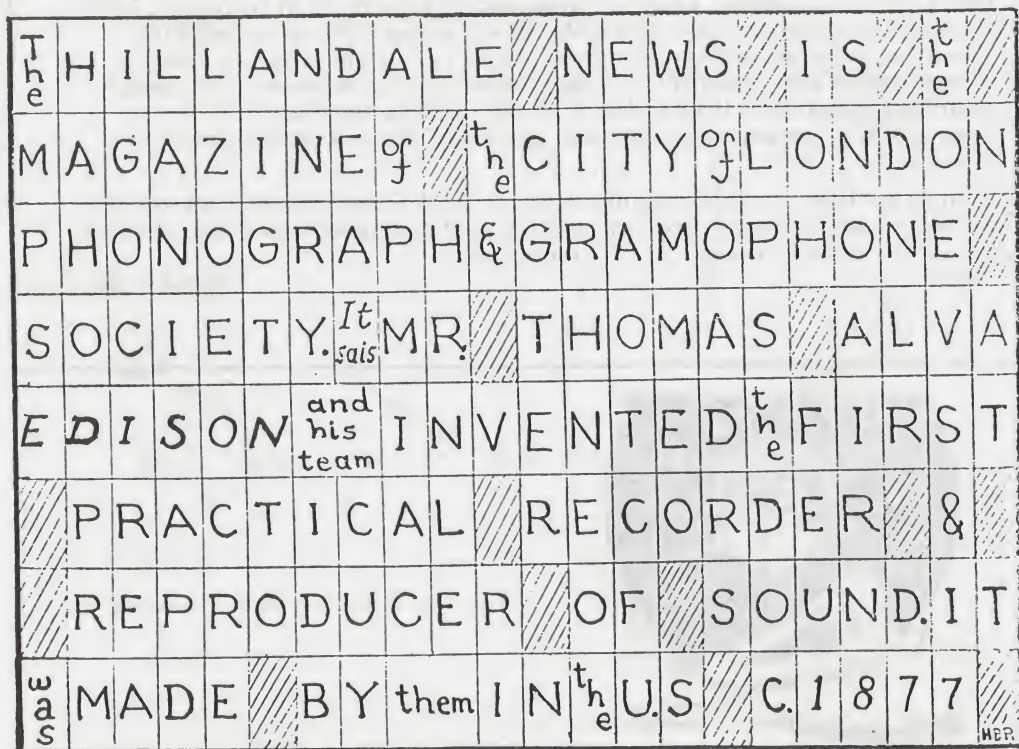 The HILLANDALE NEWS IS the
MAGAZINE of the CITY of LONDON
PHONOGRAPH & GRAMOPHONE
SOCIETY. It sais MR. THOMAS ALVA
EDISON and his team INVENTED the FIRST
PRACTICAL RECORDER &
REPRODUCER OF SOUND. IT
was MADE BY them IN the U.S C. 1877
HBP.